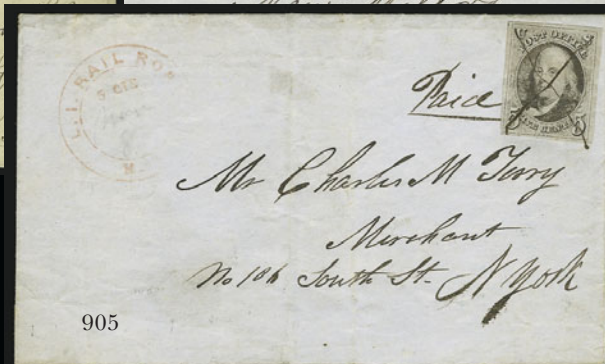 L.I. RAIL ROAD
5 CTS
M
POST OFFICE
5 5
FIVE CENTS
Paid
Mr Charles M Terry
Merchant
No 106 South St. N York
905